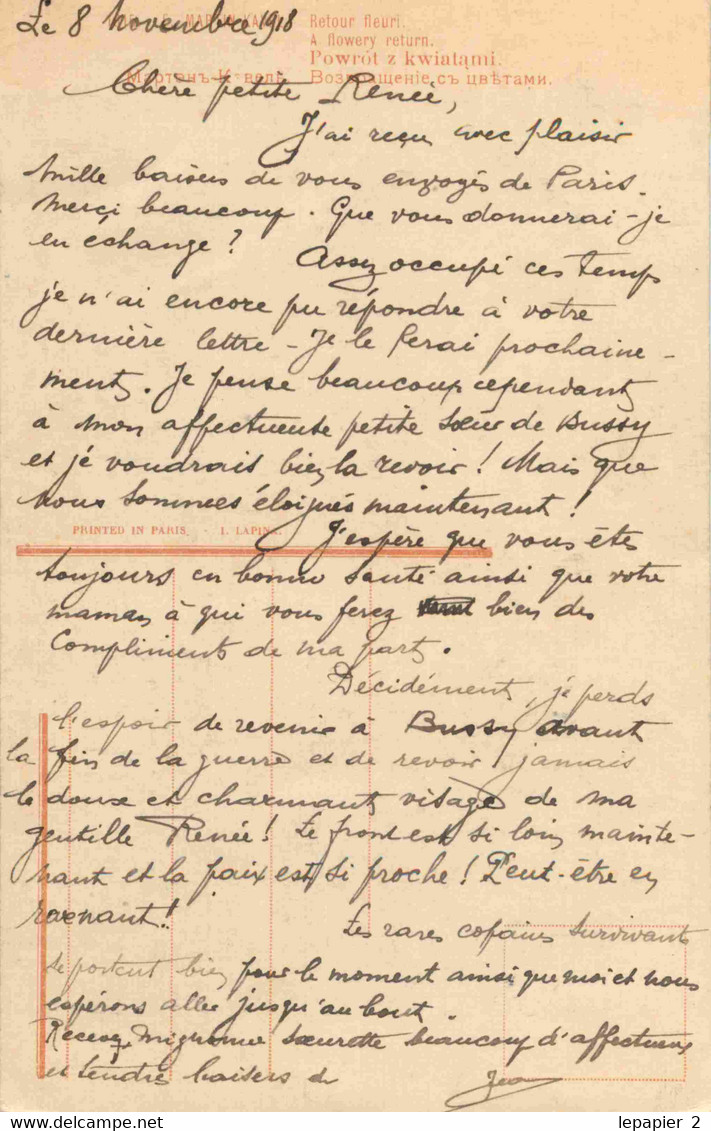 Le 8 novembre 1918
Retour fleuri.
A flowery return.
Powrót z kwiatami.
Возвращение съ цвѣтами.
Chère petite Renée,
J'ai reçu avec plaisir
mille baisers de vous envoyés de Paris.
Merci beaucoup. Que vous donnerai-je
en échange ? Assez occupé ces temps
je n'ai encore pu répondre à votre
dernière lettre - Je le ferai prochaine-
ment. Je pense beaucoup cependant
à mon affectueuse petite sœur de Bussy
et je voudrais bien la revoir ! Mais que
nous sommes éloignés maintenant !
PRINTED IN PARIS. - I. LAPINA.
J'espère que vous êtes
toujours en bonne santé ainsi que votre
maman à qui vous ferez bien des
Compliments de ma part.
Décidément, je perds
l'espoir de revenir à Bussy avant
la fin de la guerre et de revoir jamais
le doux et charmant visage de ma
gentille Renée ! Le front est si loin mainte-
nant et la paix est si proche ! Peut-être en
Les rares copains survivants
se portent bien pour le moment ainsi que moi et nous
espérons aller jusqu'au bout.
Recevez, mignonne sœurette beaucoup d'affectueux
et tendre baisers de